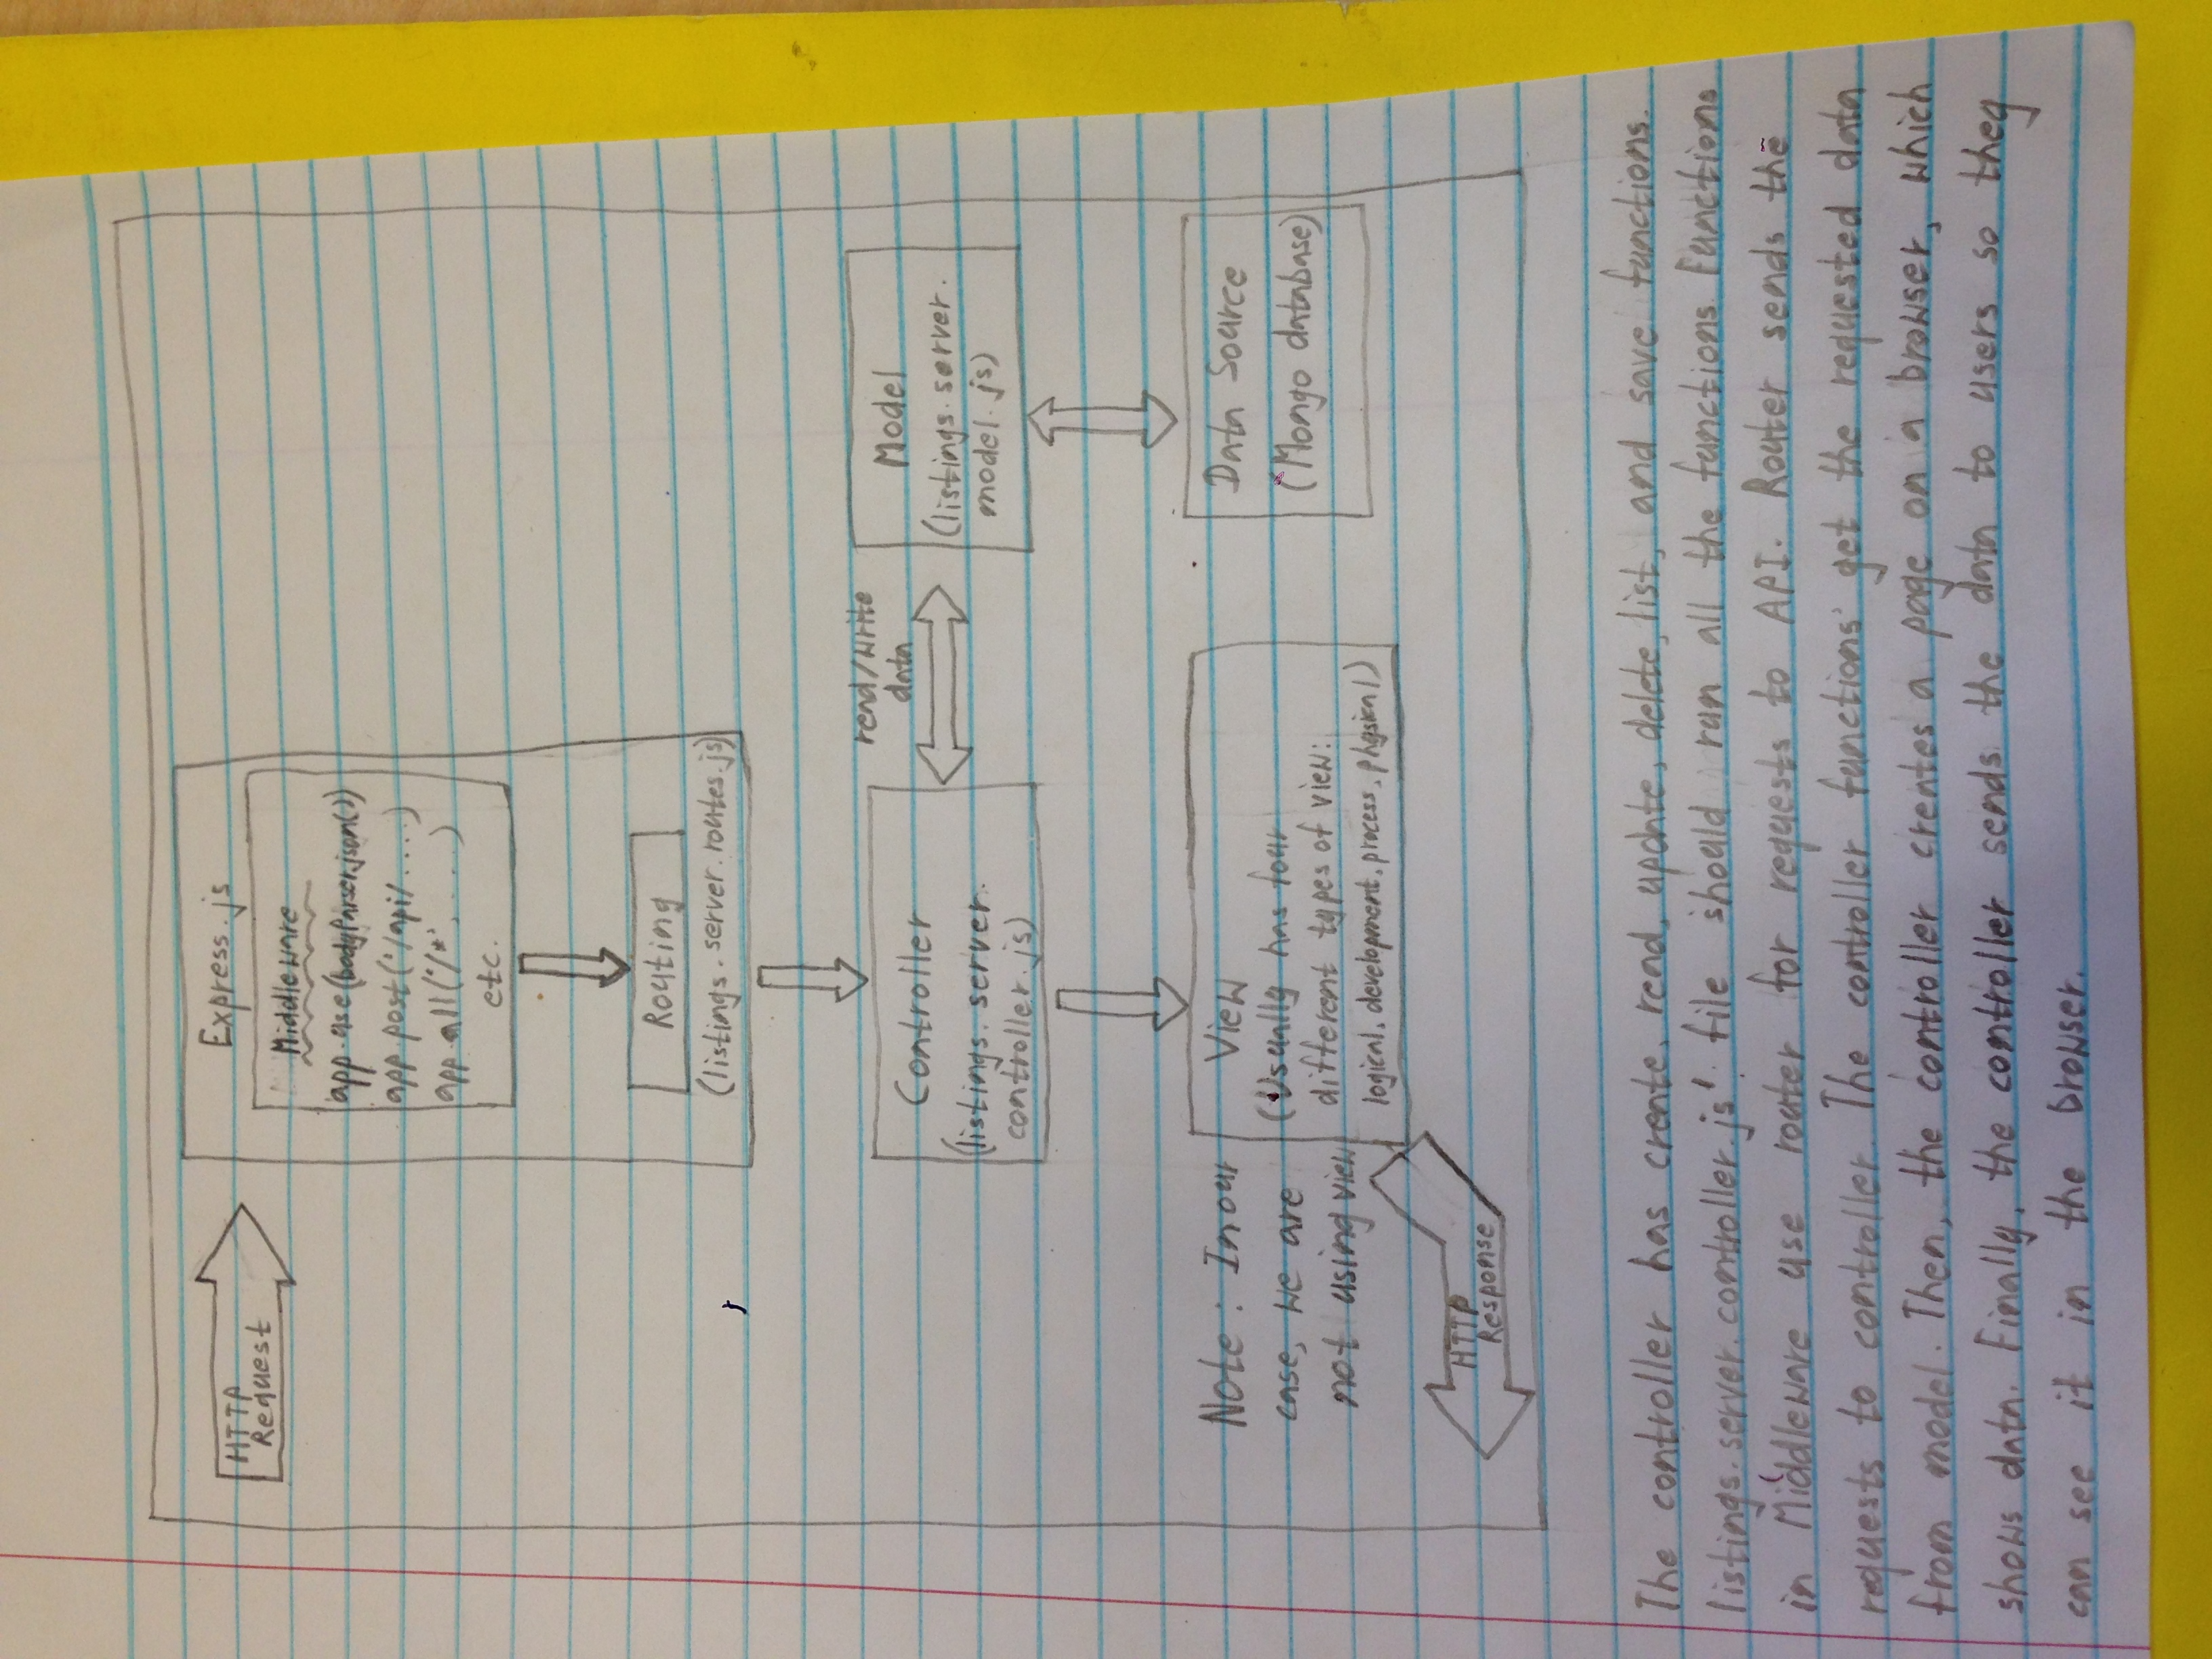 HTTP
Request
Express.js
Middleware
app.use(bodyParser.json())
app.post('/api/.....)
app.all('/*', ....)
etc.
Routing
(listings.server.routes.js)
Controller
(listings.server.
controller.js)
read/write
data
Model
(listings.server.
model.js)
Note: In our
case, we are
not using view
View
(Usually has four
different types of view:
logical, development, process, physical)
Data Source
(Mongo database)
HTTP
Response
The controller has create, read, update, delete, list, and save functions.
listings.server.controller.js' file should run all the functions. Functions
in Middleware use router for requests to API. Router sends the
requests to controller. The controller functions get the requested data
from model. Then, the controller creates a page on a browser, which
shows data. Finally, the controller sends the data to users so they
can see it in the browser.